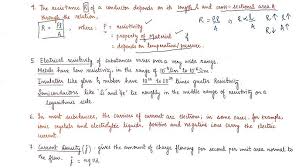 4. The resistance R of a conductor depends on its length l and cross-sectional area A
through the relation,
R = ρl/A where: ρ = resistivity
- property of Material
- depends on temperature/pressure.
R = ρl/A R ∝ l/A
5. Electrical resistivity of substances varies over a very wide range.
Metals have low resistivity, in the range of
Insulators like glass & rubber have 10²² to 10²⁴ times greater resistivity
Semiconductors like Si and Ge lie roughly in the middle range of resistivity on a
logarithmic scale.
6. In most substances, the carriers of current are electrons; in some cases, for example
ionic crystals and electrolytic liquids, positive and negative ions carry the electric
current.
7. Current density (j) gives the amount of charge flowing per second per unit area normal
to the flow. j = nqvd